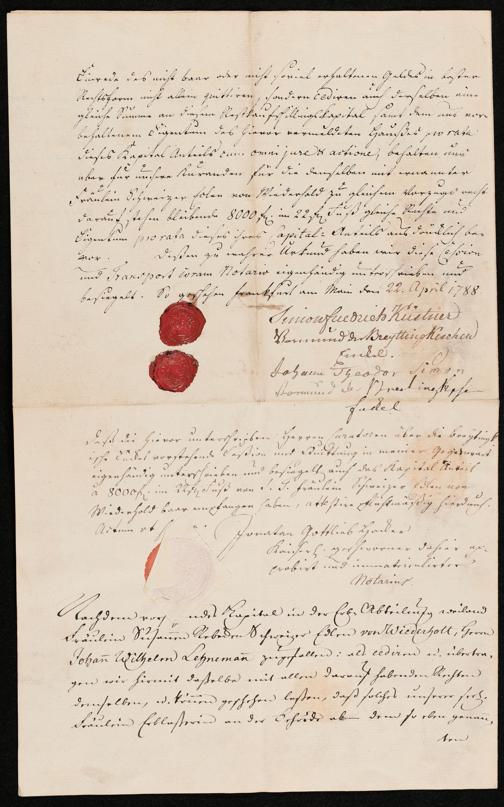 Einrede des nicht baar oder nicht soviel erhaltenen Geldes in bester
Rechtsform nicht allein quittiren, sondern cediren auch derselben eine
gleiche Summe an diesem Restkaufschillingskapital samt dem uns vor
behaltenem Eigentum des hievor vermeldten Haußes pro rata
dieses Kapital Antheils cum omni jure & actione, behalten uns
aber für unsere Curanden für die denselben mit ernannter
Fräulein Schweizer Edlen von Wiederhold zu gleichem Vorzugs recht
darauf stehen bleibende 8000 f. im 22 f. Fuß gleiche Rechte und
Eigentum pro rata dieses ihres Capital-Antheils ausdrücklich be
vor. Dessen zu wahrer Urkund haben wir diese Cession
und Transport coram Notario eigenhändig unterschrieben und
besiegelt. So geschehen Frankfurt am Main den 22. April 1788
Simon Friedrich Küstner
Vormund der Breytting Keschen
Enckel.
Johann Theodor Simon
Vormund der
Enckel
Daß die hievor unterschriebene Herren Curatoren über die
Enkel vorstehende Cession und Quittung in meiner Gegenwart
eigenhändig unterschrieben und besiegelt, auch das Kapital Antheil
à 8000 f. im von Fräulein Schweizer Edlen von
Wiederhold baar empfangen haben, attestire pflichtmäßig hierdurch.
Actum ut
Jonatan Gottlieb
Kaiserl. geschworner dahier ap-
probirt und immatriculirter
Notarius.
Nachdem Kapital in der Erb-Abtheilung weiland
Fräulein Susanna Rebecca Schweizer Edlen von Wiederholt, Herrn
Johann Wilhelm Lehnemann zugefallen: als cediren u. übertra-
gen wir hiermit dasselbe mit allen darauf habenden Rechten
demselben, u. können geschehen laßen, daß solches unserer seel.
Fräulein Erblaßerin an der Schrift ab- dem so eben genan,
ten